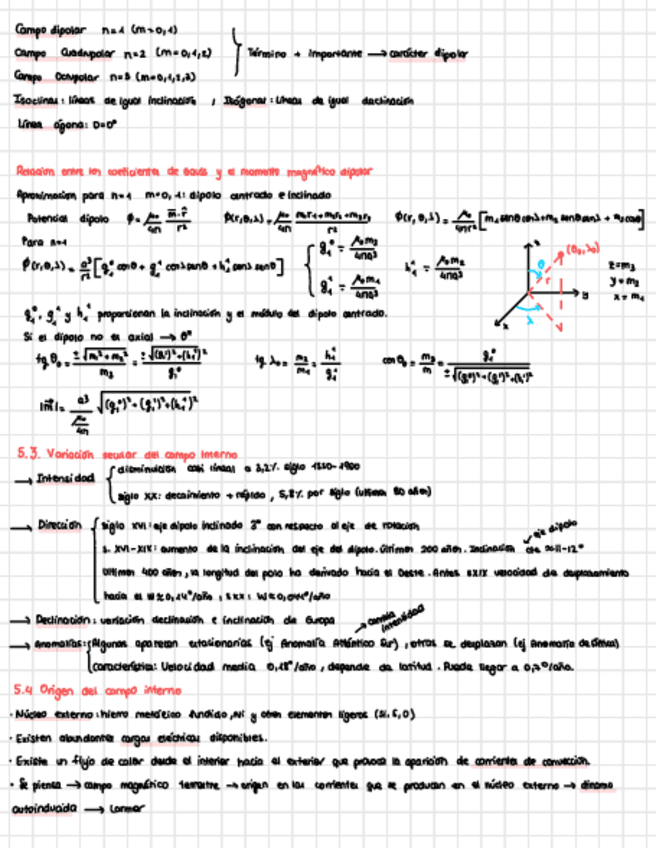 Campo dipolar n=1 (m=0,1)
Campo Cuadrupolar n=2 (m=0,1,2) } Término + importante → carácter dipolar
Campo Octupolar n=3 (m=0,1,2,3)
Isoclinas: líneas de igual inclinación, Isógonas: Líneas de igual declinación
Línea ágona: D=0°
Relación entre los coeficientes de Gauss y el momento magnético dipolar
Aproximación para n=1 m=0,1: dipolo centrado e inclinado
Potencial dipolo
Para n=1
g₁⁰, g₁¹ y h₁¹ proporcionan la inclinación y el módulo del dipolo centrado.
z=m₃
y=m₂
x=m₁
Si el dipolo no es axial → θ°
5.3. Variación secular del campo Interno
→ Intensidad { disminución casi lineal a 3,2%. siglo 1550-1900
siglo XX: decaimiento + rápido, 5,8% por siglo (últimos 80 años)
→ Dirección { siglo XVI: eje dipolo inclinado 3° con respecto al eje de rotación
s. XVI-XIX: aumento de la inclinación del eje del dipolo. Últimos 200 años. Inclinación eje dipolo de ≈11-12°
Últimos 400 años, la longitud del polo ha derivado hacia el Oeste. Antes sXIX velocidad de desplazamiento
hacia el W≈0,14°/año, sXX: W≈0,044°/año
→ Declinación: variación declinación e inclinación de Europa
→ Anomalías: { Algunas aparecen estacionarias (ej Anomalía Atlántico Sur) → cambia intensidad, otras se desplazan (ej Anomalía de
característica: Velocidad media 0,18°/año, depende de latitud. Puede llegar a 0,7°/año.
5.4 Origen del campo interno
· Núcleo externo: hierro metálico fundido, Ni y otros elementos ligeros (Si, S, O)
· Existen abundantes cargas eléctricas disponibles.
· Existe un flujo de calor desde el interior hacia el exterior que provoca la aparición de corrientes de convección.
· Se piensa → campo magnético terrestre → origen en las corrientes que se producen en el núcleo externo → dinamo
autoinducida → Larmor